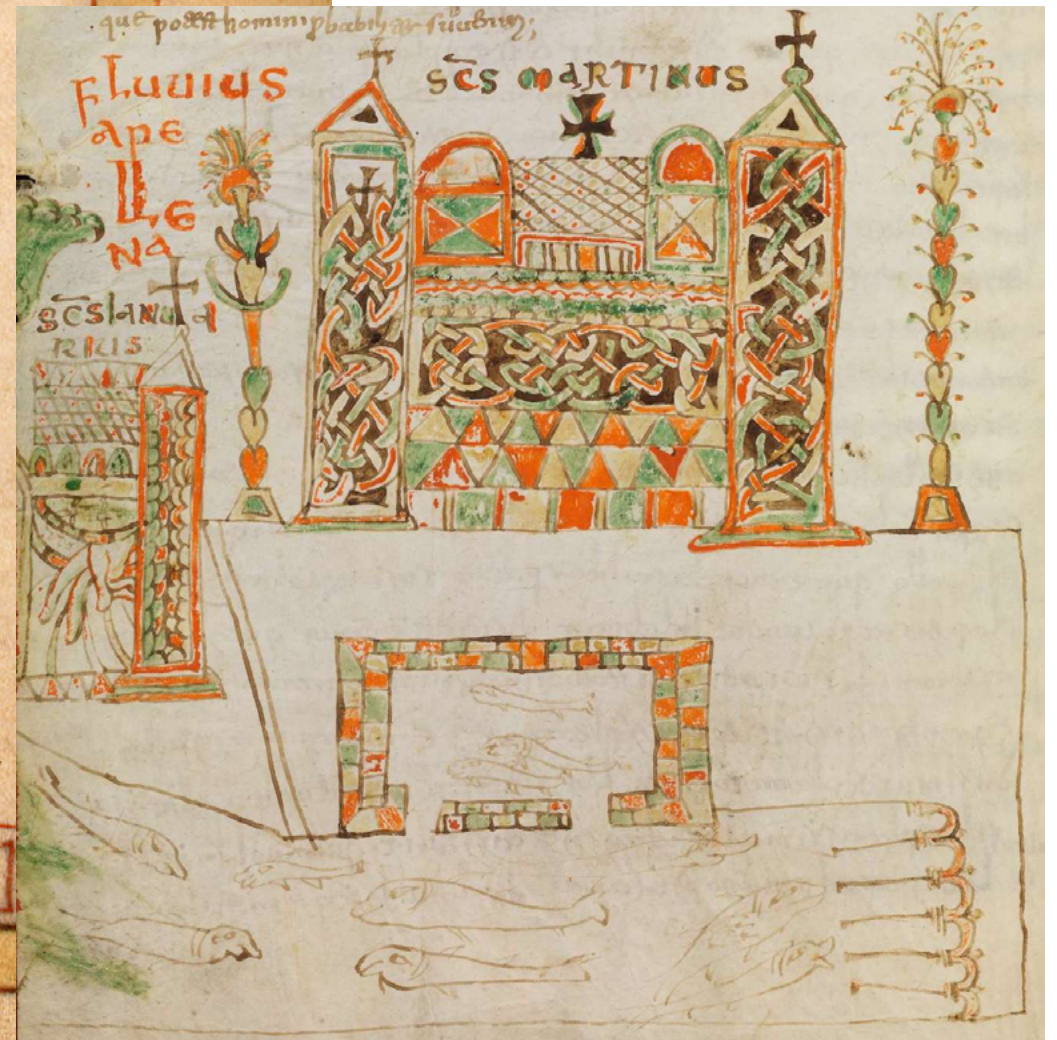 quę homini
FLUUIUS
APE
LLE
NA
SCS̄ MARTINUS
SCS̄ IANUA
RIUS